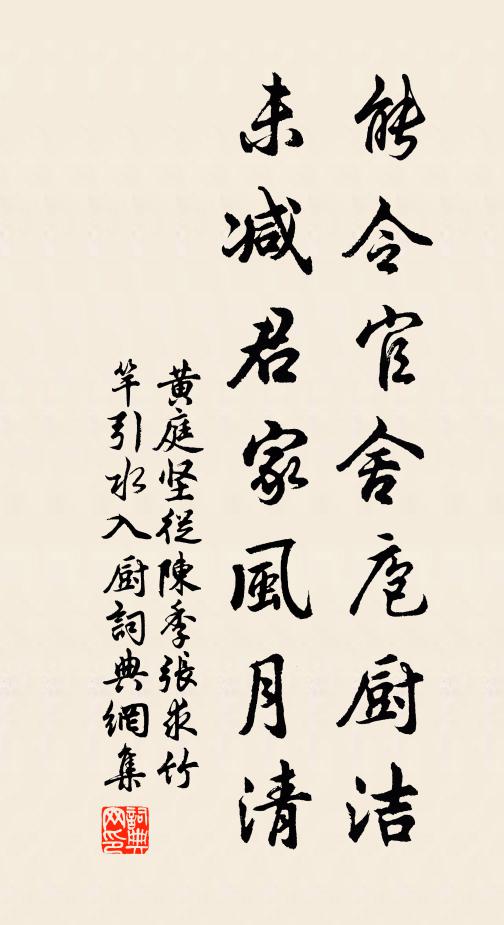 能令官舍庖厨洁
未减君家風月清
黄庭坚從陳季張求竹
竿引水入厨詞典網集
詞典網印